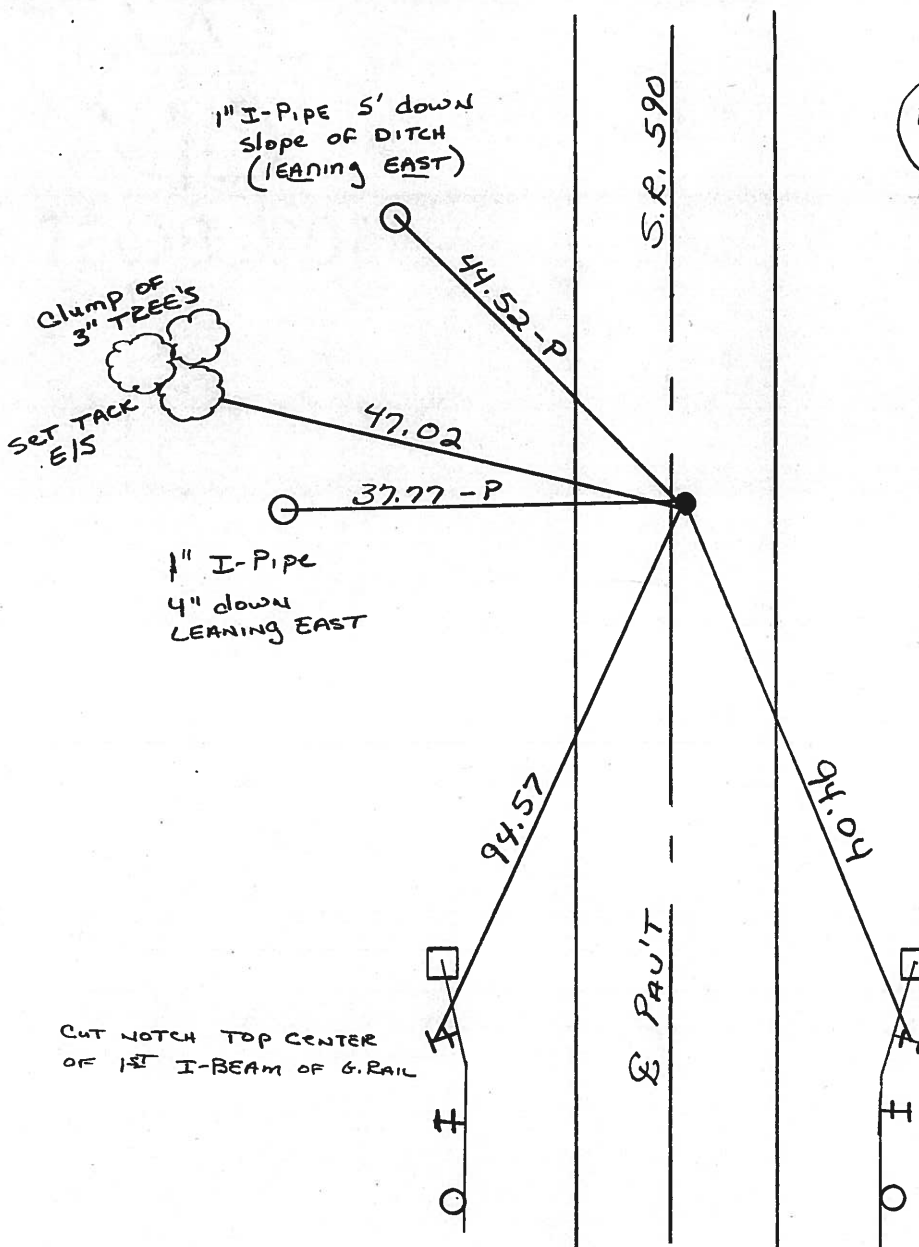 1" I-PIPE 5' down
slope OF DITCH
(LEANING EAST)
S.R. 590
44.52-P
Clump OF
3" TREE'S
SET TACK
E/S
47.02
37.77-P
1" I-Pipe
4" down
LEANING EAST
94.57
94.04
℄ PAV'T
CUT NOTCH TOP CENTER
OF 1ST I-BEAM OF G.RAIL